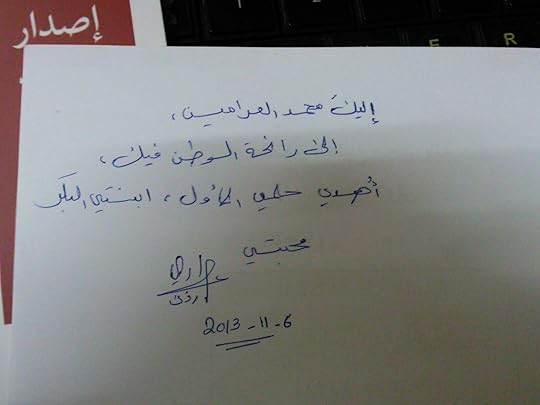 إصدار
E R
إليك محمد العرامين،
إلى رائحة الوطن فيك،
أهدي حلمي الأول، ابنتي البكر
محبتي
2013-11-6